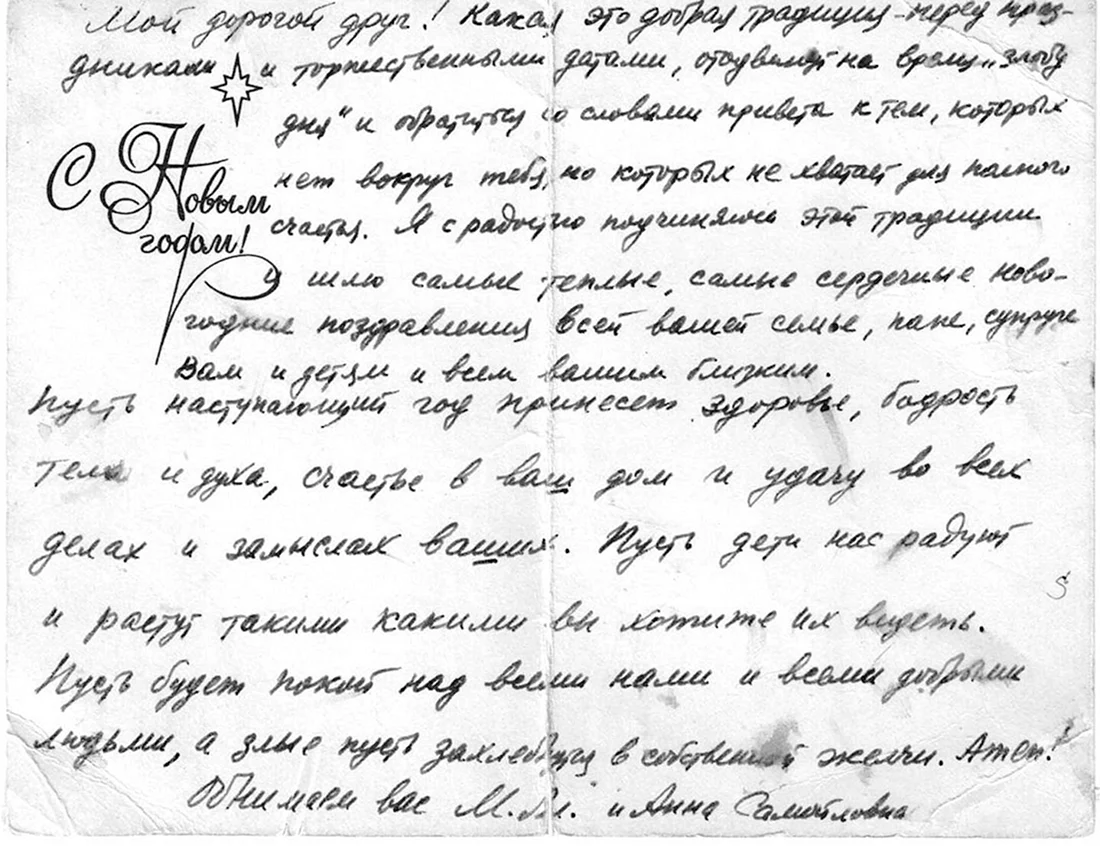 Мой дорогой друг! Какая это добрая традиция - перед праз-
дниками и торжественными датами, отодвинут на время „злобу
дня" и обратиться со словами привета к тем, которых
С Новым
годом!
нет вокруг тебя, но которых не хватает для полного
счастья. Я с радостью подчиняюсь этой традиции
и шлю самые теплые, самые сердечные ново-
годние поздравления всей вашей семье, папе, супруге
Вам и детям и всем вашим близким.
Пусть наступающий год принесет здоровье, бодрость
тела и духа, счастье в ваш дом и удачу во всех
делах и замыслах ваших. Пусть дети нас радуют
и растут такими какими вы хотите их видеть.
Пусть будет покой над всеми нами и всеми добрыми
людьми, а злые пусть захлебнутся в собственной желчи. Amen!
Обнимаем вас М. и Анна Самойловна